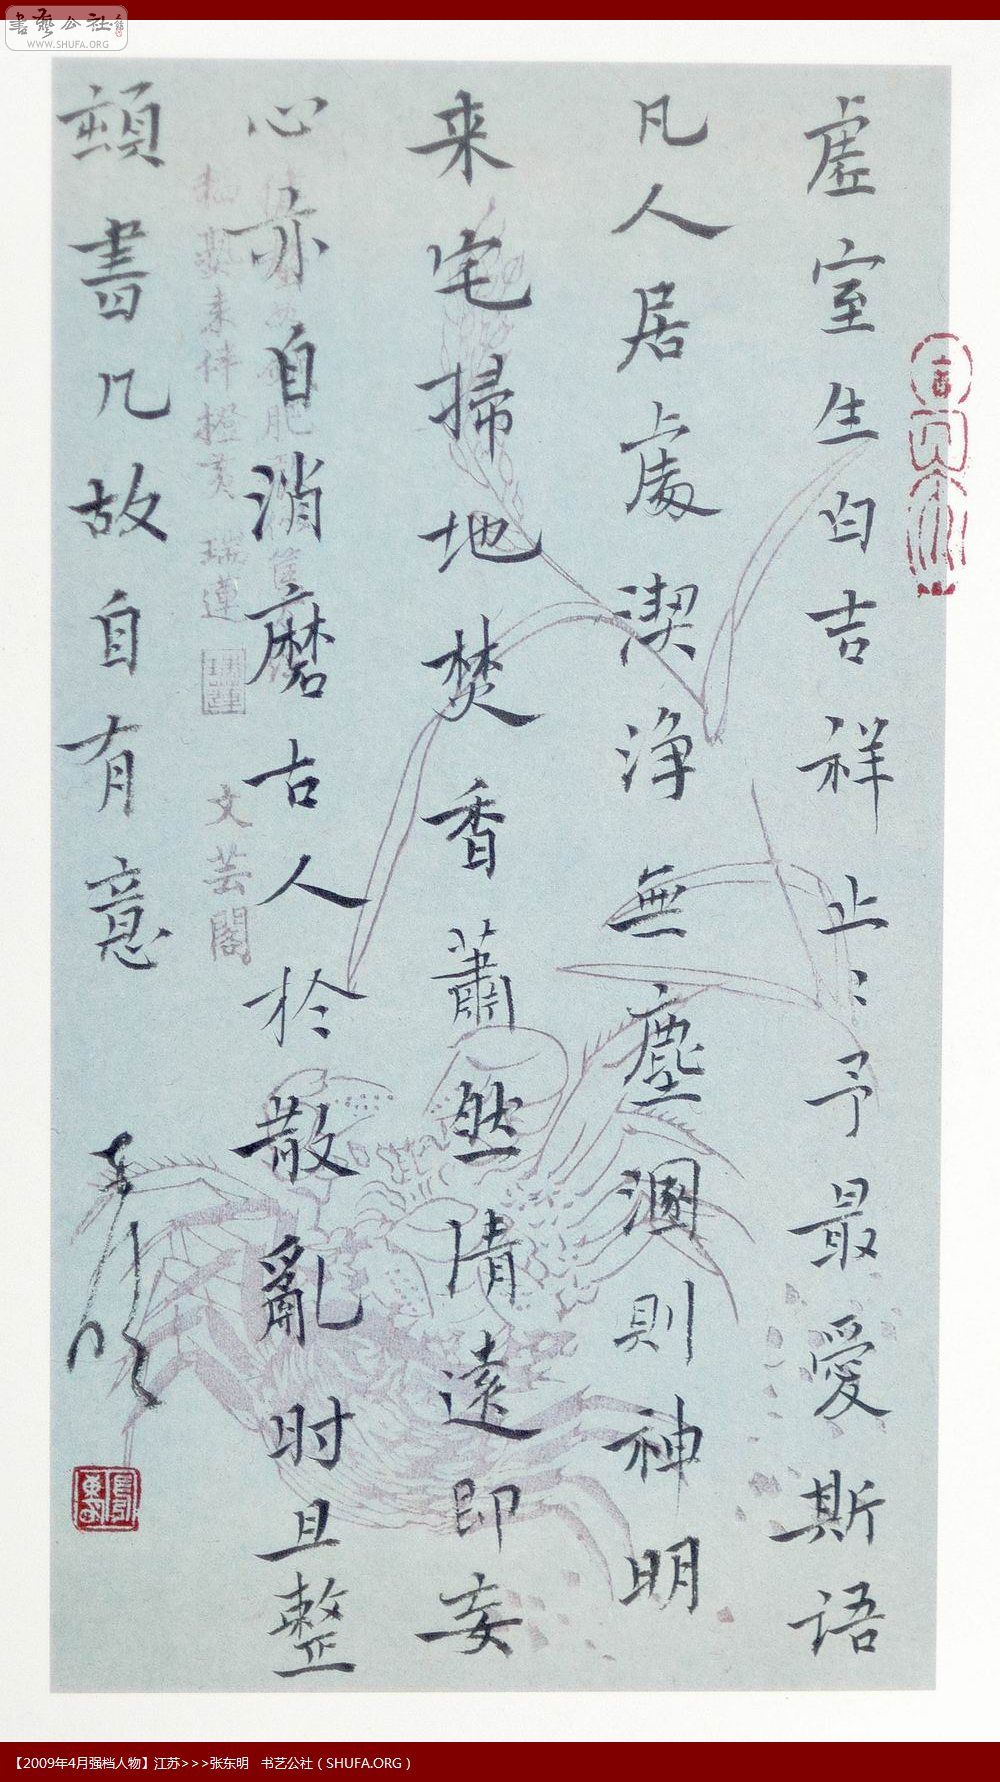 書藝公社
WWW.SHUFA.ORG
虛室生白吉祥止⺀予最愛斯語
凡人居處潔淨無塵溷則神明
来宅掃地焚香蕭然清遠即妄
心亦自消磨古人於散亂时且整
頓書几故自有意
东明
文芸閣
瑞蓮
【2009年4月强档人物】江苏>>>张东明 书艺公社（SHUFA.ORG）